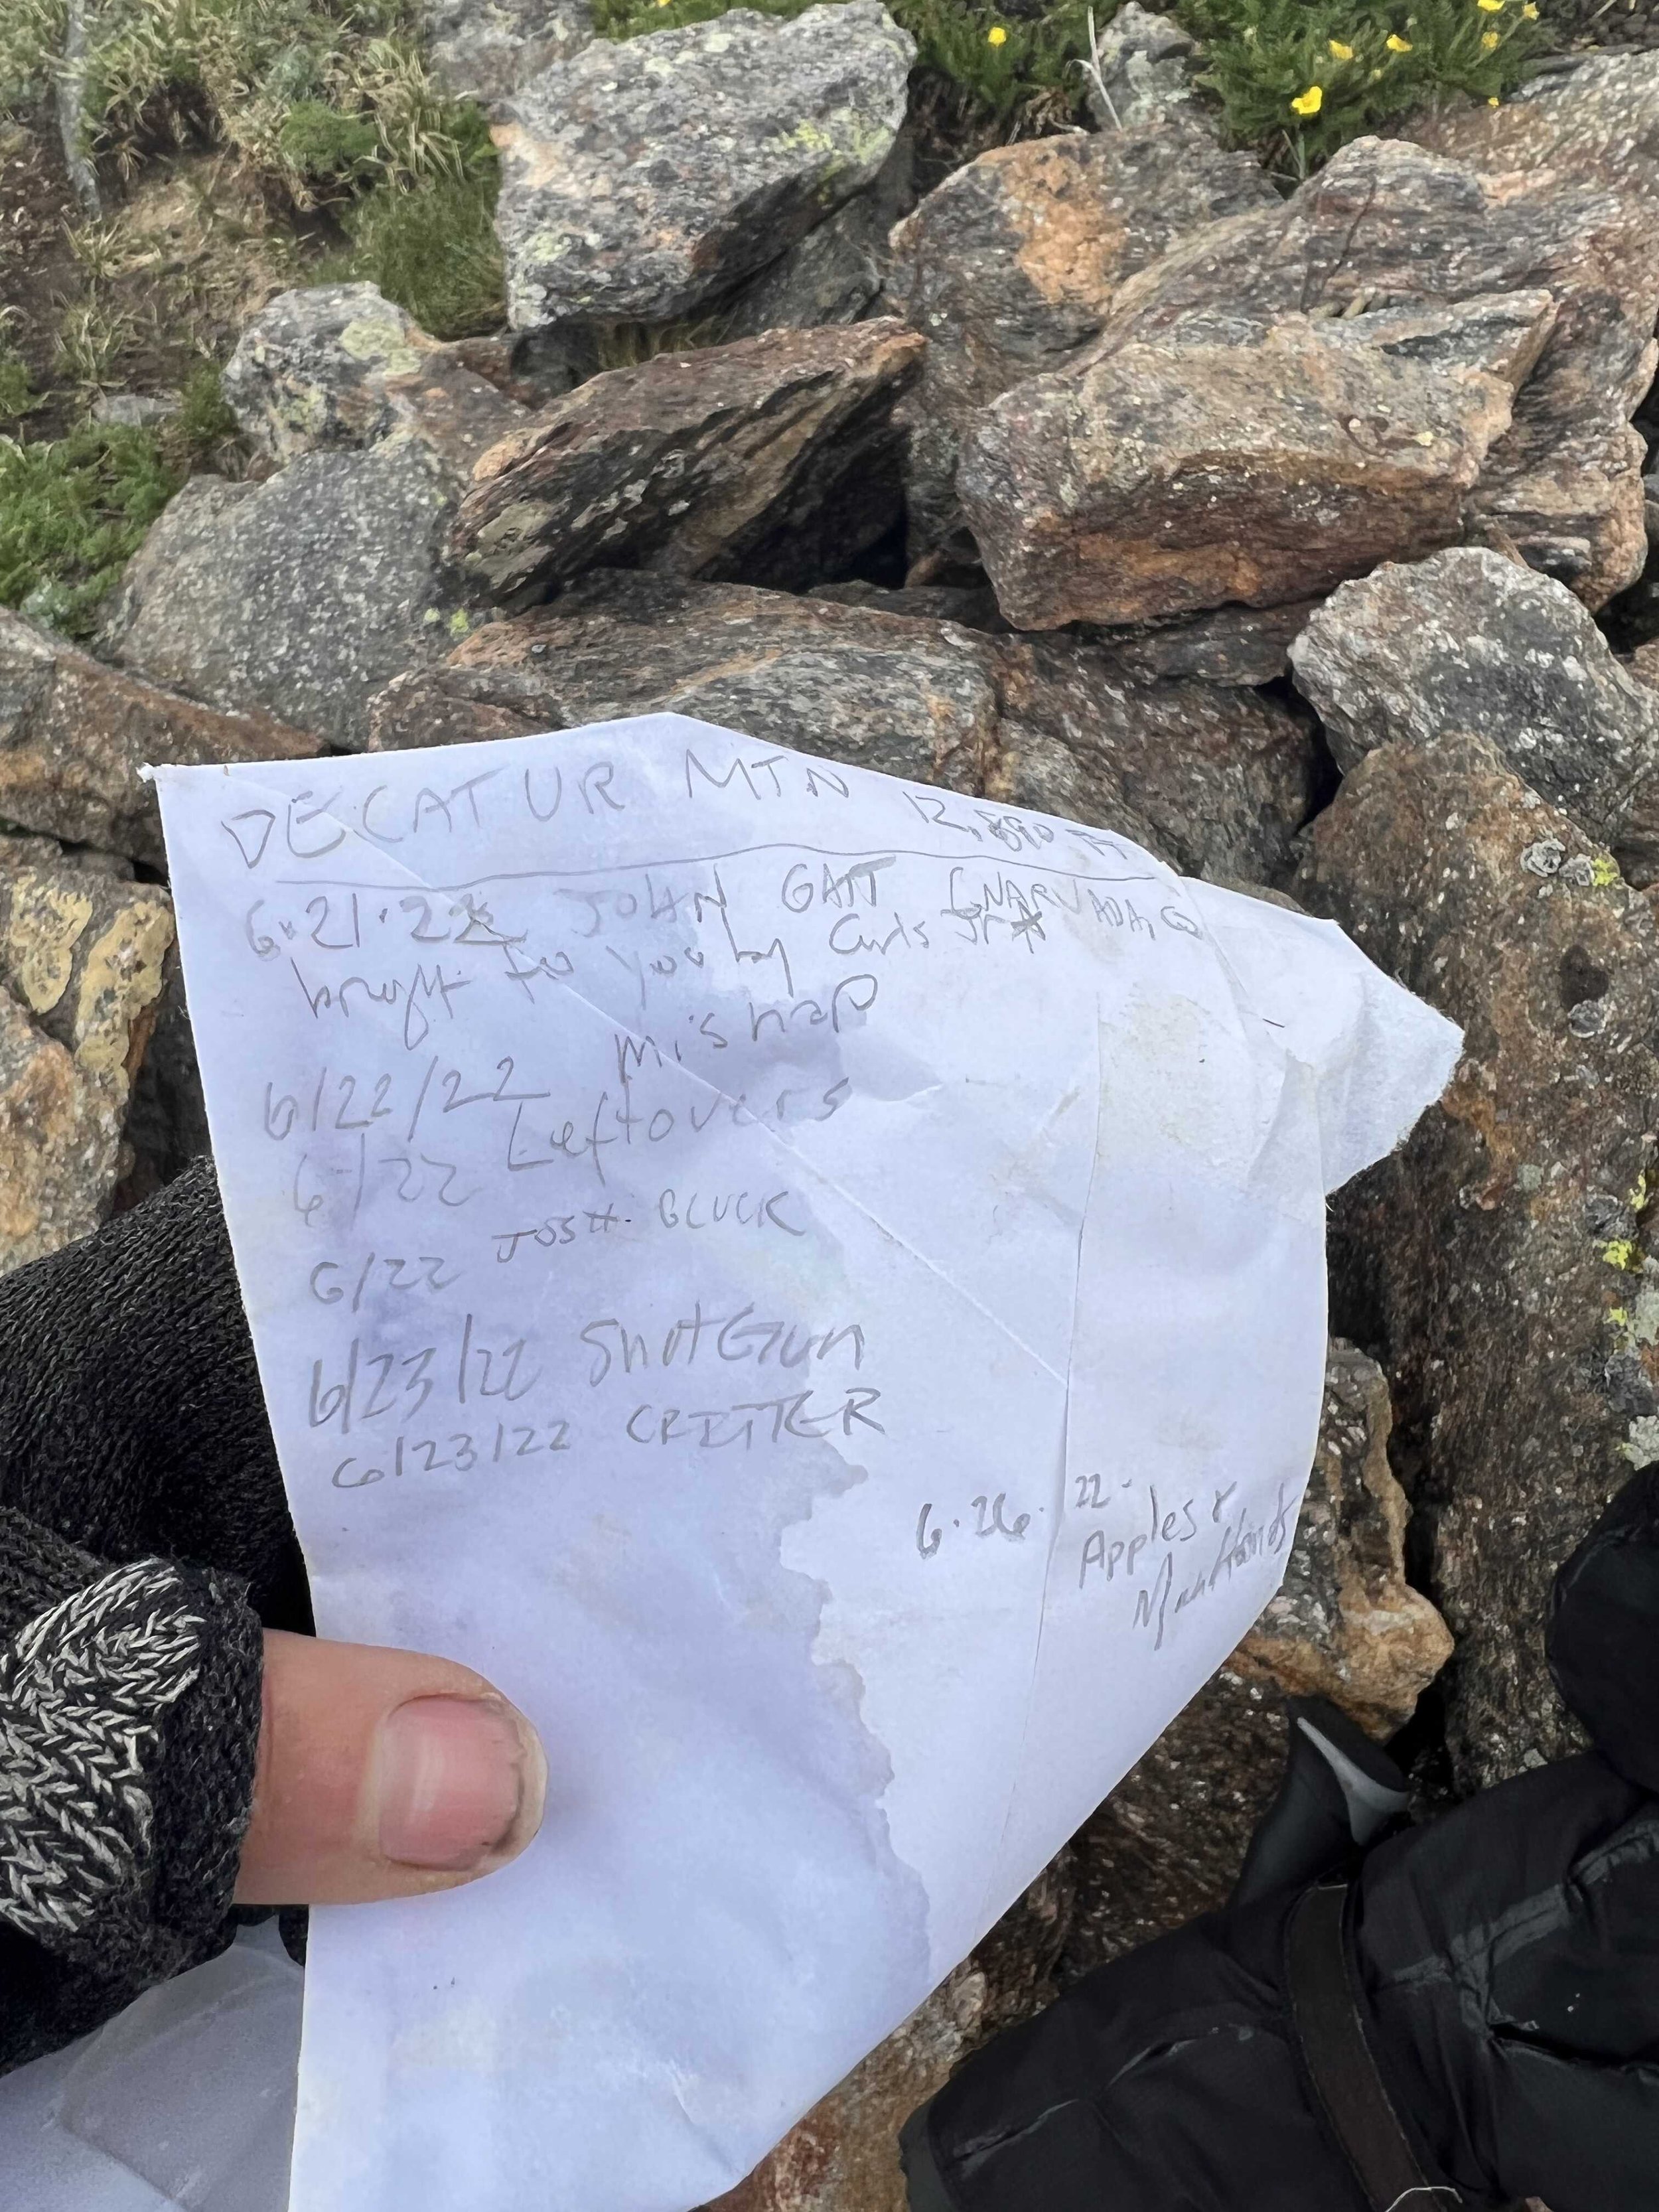 DECATUR MTN 12,890 FT
6.21.22 JOHN GATT GNARVADA, CO
brought to you by Carls Jr*
6/22/22 Mishap
6/22 Leftovers
6/22 JOSH GLUCK
6/23/22 ShotGun
6/23/22 CRITTER
6.26.22.
Apples &